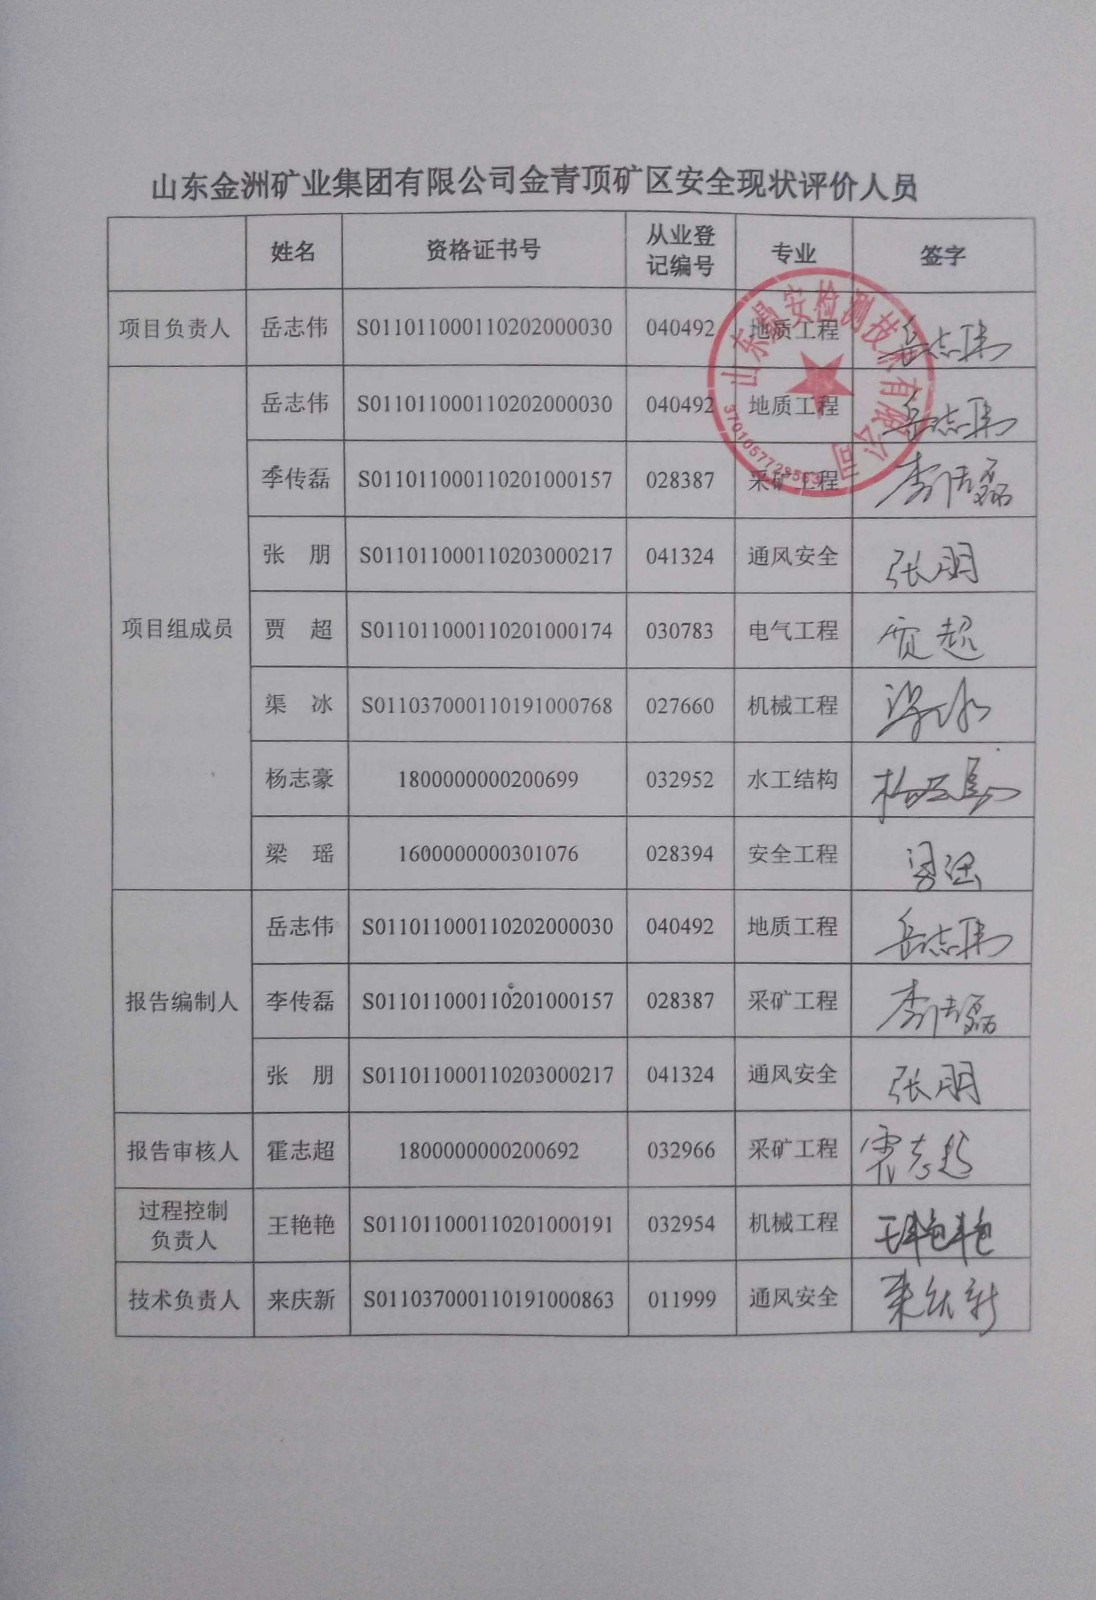 山东金洲矿业集团有限公司金青顶矿区安全现状评价人员
姓名 资格证书号 从业登记编号 专业 签字
项目负责人 岳志伟 S011011000110202000030 040492 地质工程 岳志伟
项目组成员 岳志伟 S011011000110202000030 040492 地质工程 岳志伟
李传磊 S011011000110201000157 028387 采矿工程 李传磊
张 朋 S011011000110203000217 041324 通风安全 张朋
贾 超 S011011000110201000174 030783 电气工程 贾超
渠 冰 S011037000110191000768 027660 机械工程 渠冰
杨志豪 1800000000200699 032952 水工结构 杨志豪
梁 瑶 1600000000301076 028394 安全工程 梁瑶
报告编制人 岳志伟 S011011000110202000030 040492 地质工程 岳志伟
李传磊 S011011000110201000157 028387 采矿工程 李传磊
张 朋 S011011000110203000217 041324 通风安全 张朋
报告审核人 霍志超 1800000000200692 032966 采矿工程 霍志超
过程控制
负责人 王艳艳 S011011000110201000191 032954 机械工程 王艳艳
技术负责人 来庆新 S011037000110191000863 011999 通风安全 来庆新
山东 安检测技术有限公司